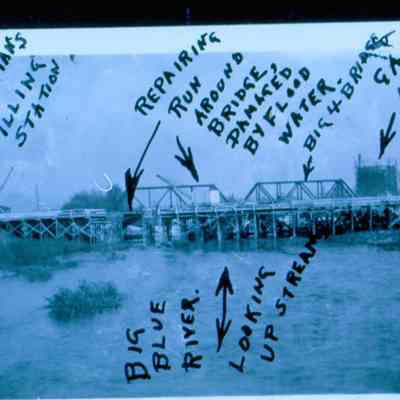 ILLING
STATION
REPAIRING
RUN
AROUND
BRIDGE,
DAMAGED
BY FLOOD
WATER.
BIG 4 BRIDGE
BIG
BLUE
RIVER.
LOOKING
UP STREAM